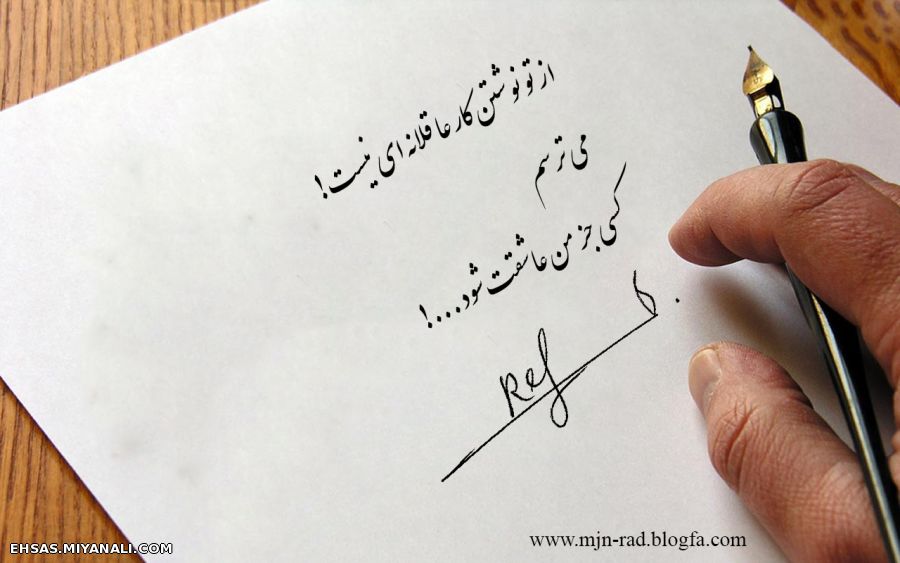 از تو نوشتن کار عاقلانه ای نیست!
می ترسم
کسی جز من عاشقت شود...!
Ref
www.mjn-rad.blogfa.com
EHSAS.MIYANALI.COM